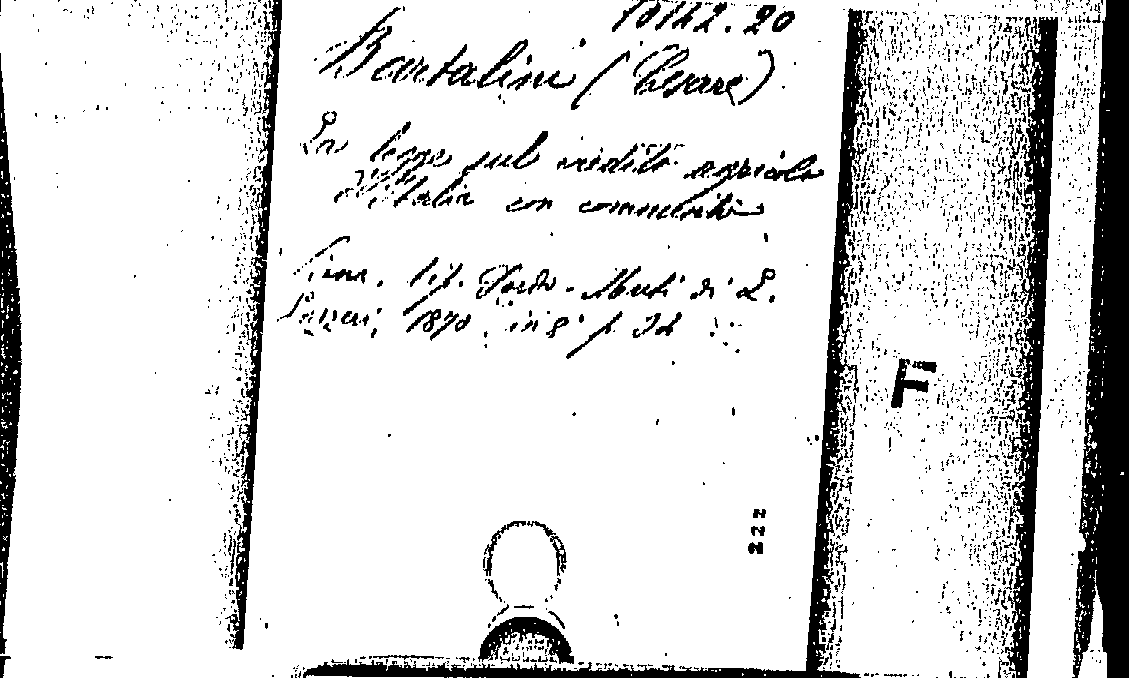 10142.20
Bartalini (Cesare)
La legge sul credito agricolo
d'Italia con commenti
Siena, tip. Sordo-Muti di L.
Lazzeri, 1870, in 8° p.
F
222